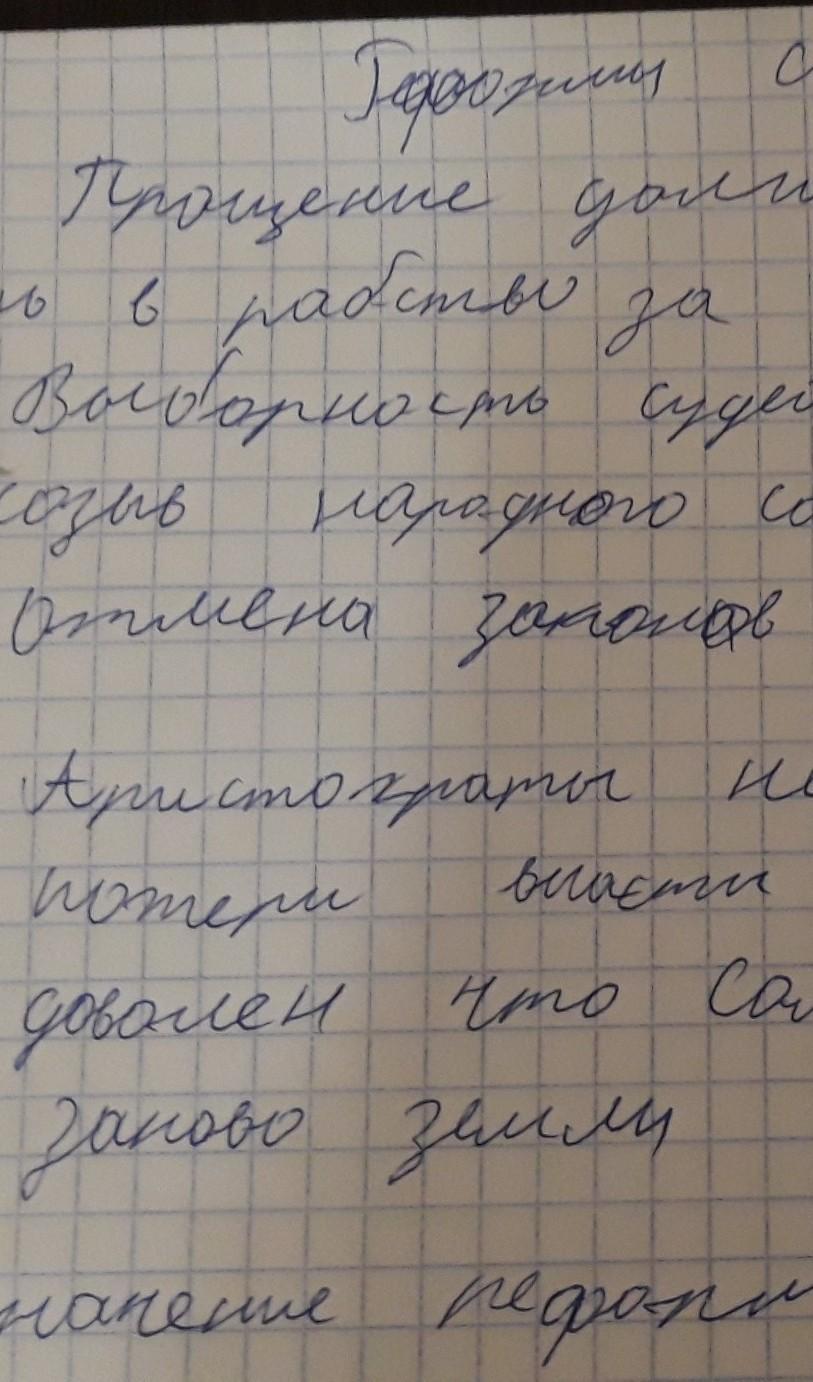 Реформы С
Прощение долг
ь в рабство за
Выборность судей
созыв народного со
Отмена законов
Аристократы не
потери власти
доволен что Сол
заново земли
начение реформ